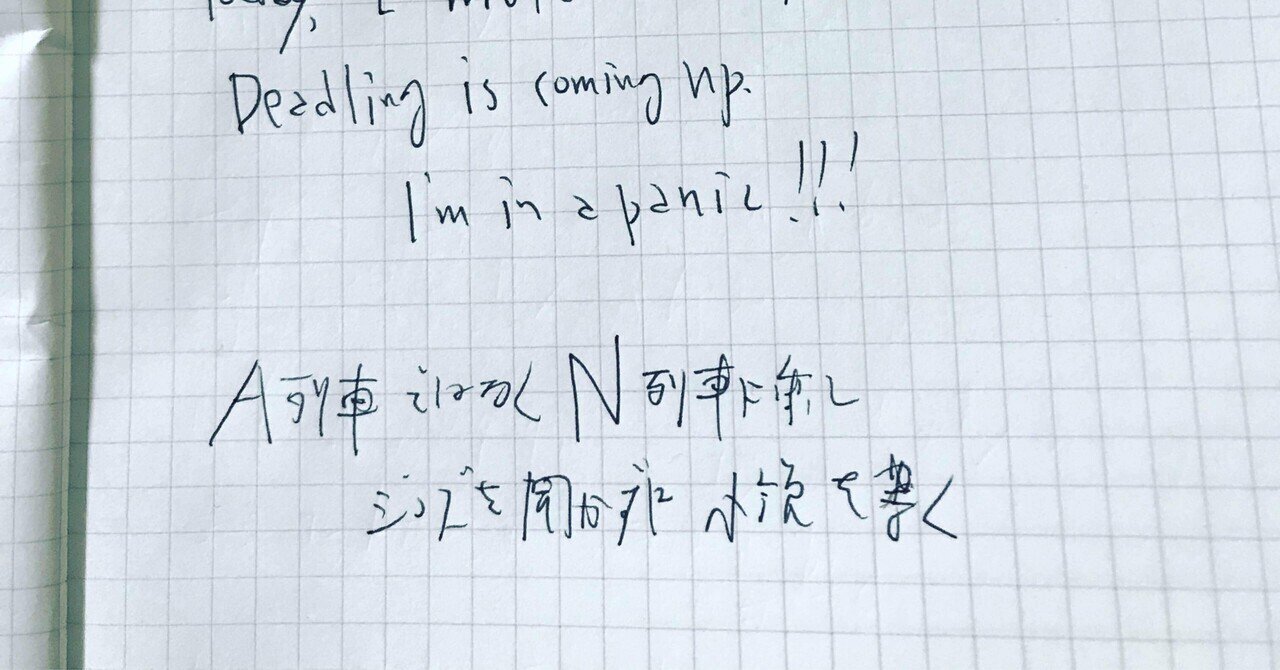 Today, I
Deadling is coming up.
I'm in a panic!!!
A列車ではなくN列車に乗って
ジャズを聞かずに小説を書く